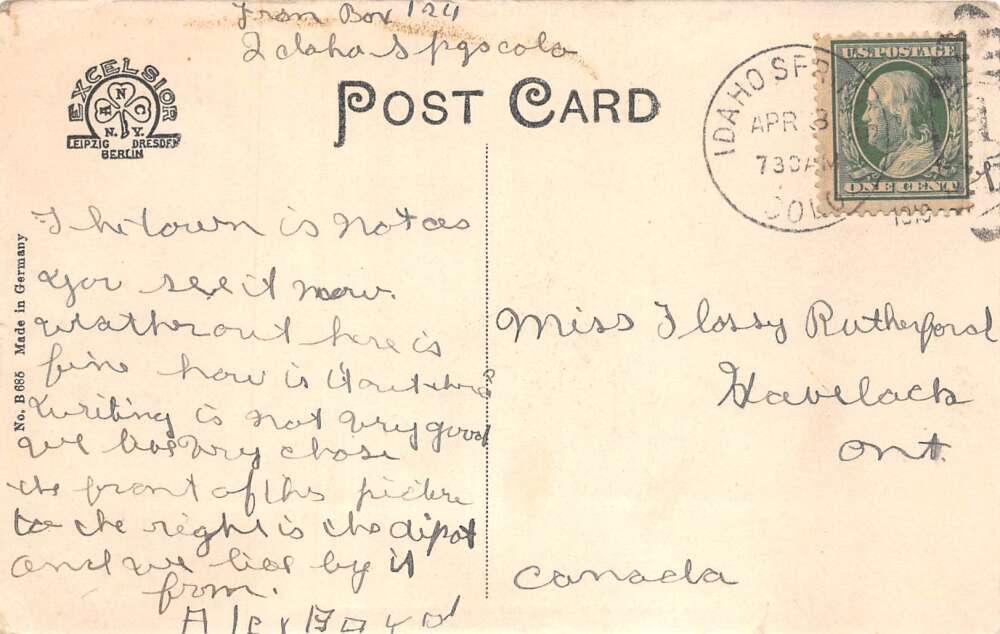 From Box 124
Idaho Spgs colo
EXCELSIOR
H N C
N. Y.
LEIPZIG DRESDEN
BERLIN
POST CARD
IDAHO SPR
APR 8
730AM
COLO
U.S. POSTAGE
ONE CENT
No. B 685 Made in Germany
The town is not as
you see it now.
weather out here is
fine how is it out there?
writing is not very good
we live very close
the front of this picture
to the right is the dipot
and we live by it
from.
Alex Boyd
Miss Flossy Rutherford
Havelock
Ont.
Canada